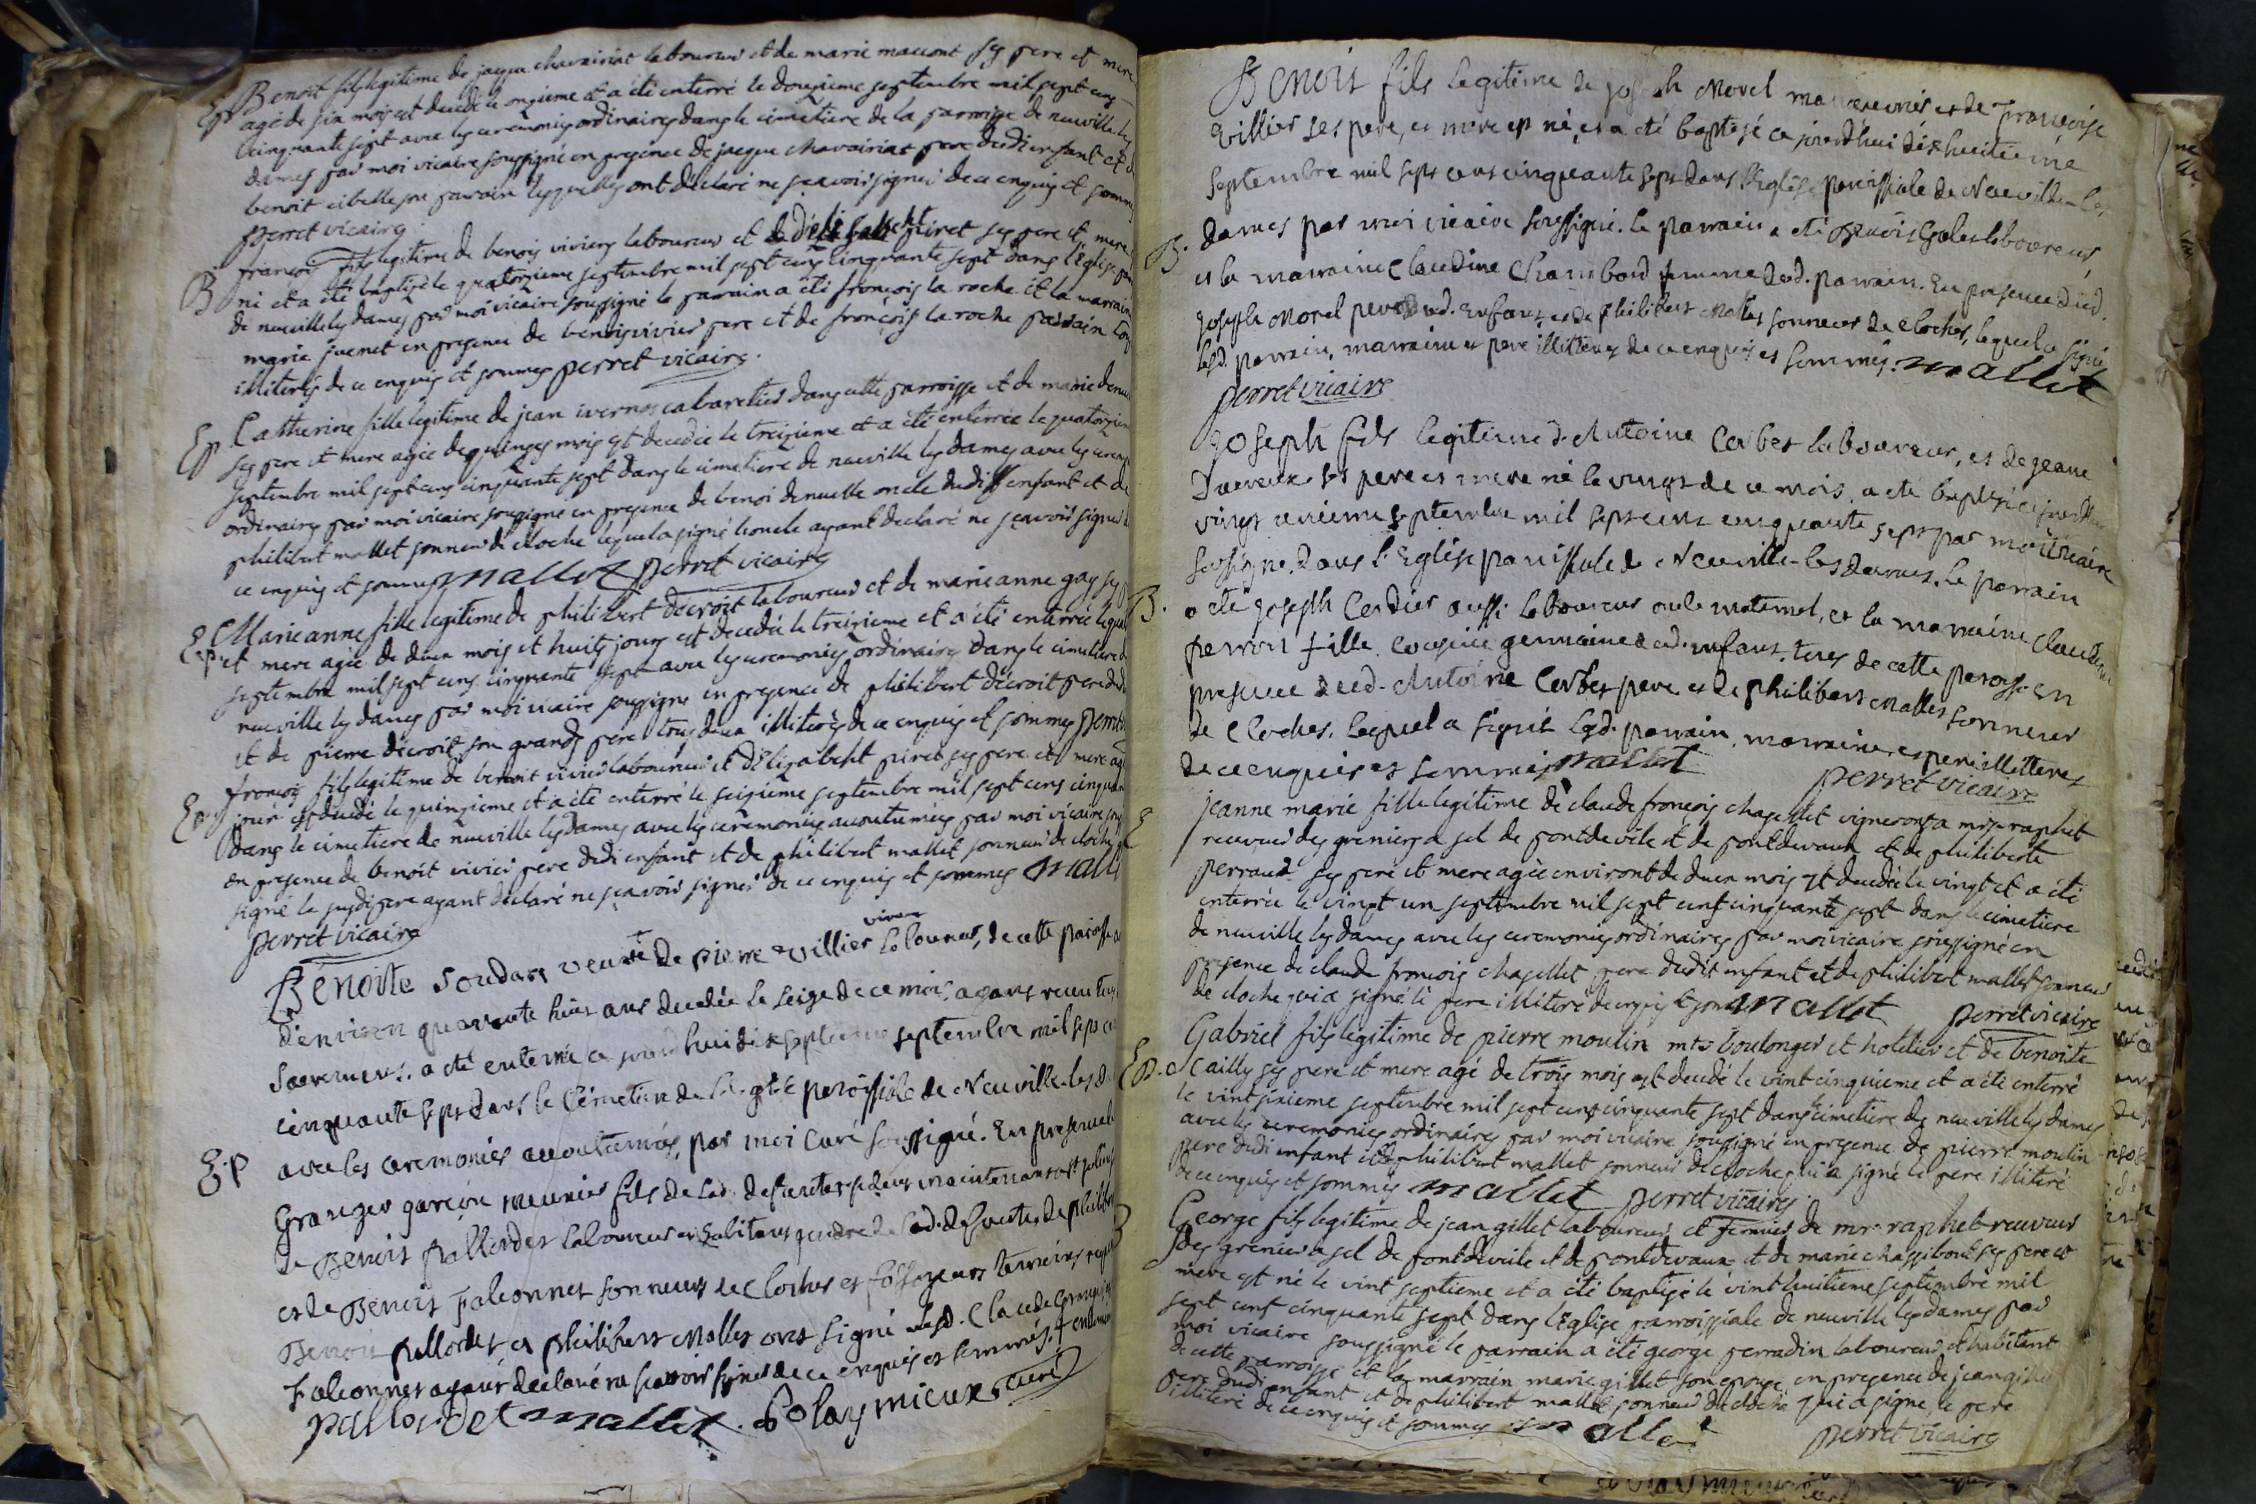 Ep Benoit fils legitime de jaque chavairiat laboureur et de marie maccont ses pere et mere
agé de six mois est decedé le onzieme et a été enterré le douzieme septembre mil sept cens
cinquante sept avec les ceremonies ordinaires dans le cimetiere de la parroisse de neuville les
dames par moi vicaire soussigné en presence de jacque chavairiat pere dudi enfant et de
benoit cibelle son parrain lesquelles ont déclaré ne sçavoir signer de ce enquis et sommes
perret vicaire
françois fils legitime de benois viviers laboureur et piret ses pere et mere
B né et a été baptisé le quatorzieme septembre mil sept cens cinquante sept dans l'Eglise
de neuville les dames par moi vicaire soussigné le parrain a été françois la roche et la marraine
marie juenet en presence de benois vivier pere et de françois la roche parrain tous
illiterés de ce enquis et sommes perret vicaire.
Ep Catherine fille legitime de jean ivernos cabaretier dans cette parroisse et de marie denuelle
ses pere et mere agée de quinzes mois est decedée le treizieme et a été enterrée le quatorzieme
septembre mil sept cens cinquante sept dans le cimetiere de neuville les dames avec les ceremonies
ordinaires par moi vicaire soussigné en presence de benoi denuelle oncle dudit enfant et de
philibert mallet sonneur de cloche lequel a signé l'oncle ayant declaré ne sçavoir signer
ce enquis et sommes mallet perret vicaire
Ep Marie anne fille legitime de philibert décroit laboureur et de marie anne gay ses
et mere agée de deux mois et huits jours est decedée le treizieme et a été enterrée le
septembre mil sept cens cinquante sept avec les ceremonies ordinaires dans le cimetiere
neuville les dames par moi vicaire soussigné en presence de philibert décroit pere
et de pierre décroit son grand pere tous deux illiterés de ce enquis et sommes perret
françois fils legitime de benoit vivier laboureur et d'Elizabeht piret ses pere et mere agé
Ep jour est decedé le quinzieme et a été enterré le seizieme septembre mil sept cens cinquante
dans le cimetiere de neuville les dames avec les ceremonies accoutumées par moi vicaire
en presence de benoit vivier pere dudi enfant et de philibert mallet sonneur de cloche
signé le susdi pere ayant déclaré ne sçavoir signer de ce enquis et sommes mallet
perret vicaire
vivan
Bénoite soudan veuve de pierre villier laboureur, de cette paroisse
d'environ quarante huit ans decedée le seize de ce mois, ayant receu tous
sacremens. a été enterrée ce jourd'hui dix septieme septembre mil sept cens
cinquante sept dans le Cémetiere de l'Eglise paroissiale de Neuville-les-d
E.p avec les ceremonies accoutumées, par moi Curé soussigné. En presence de
Granger garçon meunier fils de lad. defunte
de Benoit pallordet laboureur et habitant gendre de lad. defunte, de philibert
et de Benoit Falconnet sonneurs de cloches et fossoyeurs temoins
Benoit pallordet et philibert Mallet ont signé
Falconnet ayant déclaré ne sçavoir signer de ce enquis et sommés.
pallordet mallet. Polaymieux. curé
Benoit fils legitime de joseph Morel manoeuvrier et de Françoise
villier ses pere, et mere est né, et a été baptisé ce jourd'hui dixhuitieme
septembre mil sept cens cinquante sept dans l'Eglise paroissiale de Neuville-les
B. dames par moi vicaire soussigné. le parrain a été Benoit laboureur,
et la marraine Claudine Chambard femme dud. parrain. En presence dud.
joseph Morel pere dud. enfant, et de philibert Mallet sonneur de cloches, lequel a signé
lesd. parrain, marraine et pere illitterés de ce enquis et sommés. mallet
perret vicaire
joseph fils legitime d'Antoine Cerbet laboureur, et de jeane
ses pere et mere né le vingt de ce mois, a été baptisé ce jourd'hui
vingt unieme septembre mil sept cens cinquante sept par moi vicaire
soussigné. dans l'Eglise paroissiale de Neuville-les-dames. le parrain
B. a été joseph Cerdier aussi laboureur oncle maternel, et la marraine Claudine
perroit fille. cousine germaine dud. enfant. tous de cette paroisse en
presence dud. Antoine Cerbet pere et de philibert Mallet sonneur
de cloches. lequel a signé lesd. parrain, marraine et pere illitteres
de ce enquis et sommés mallet perret vicaire
E jeanne marie fille legitime de claude françois chapellet vigneron a mr raphet
receveur des greniers a sel de pontdevile et de pontdevaux et de philiberte
perraud ses pere et mere agée environt de deux mois est decedée le vingt et a été
enterrée le vingt un septembre mil sept cens cinquante sept dans le cimetiere
de neuville les dames avec les ceremonies ordinaires par moi vicaire soussigné en
presence de claude françois chapellet pere dudit enfant et de philibert mallet sonneur
de cloche qui a signé le pere illiteré de ce enquis et sommé mallet perret vicaire
Gabriel fils legitime de pierre moulin mtr boulonger et hotelier et de benoite
Ep. Cailly ses pere et mere agé de trois mois est decedé le vint cinquieme et a été enterré
le vint sixieme septembre mil sept cens cinquante sept dans le cimetiere de neuville les dames
avec les ceremonies ordinaires par moi vicaire soussigné en presence de pierre moulin
pere dudi enfant et de philibert mallet sonneur de cloche qui a signé le pere illiteré
de ce enquis et sommes mallet perret vicaire
George fils legitime de jean gillet laboureur et fermier de mr raphet receveur
des grenier a sel de pontdevile et de pontdevaux et de marie chassibout ses pere et
mere est né le vint septieme et a été baptisé le vint huitieme septembre mil
sept cens cinquante sept dans l'Eglise parroissiale de neuville les dames par
moi vicaire soussigné le parrain a été george perradin laboureur et habitant
de cette parroisse et la marrain marie gillet son epouse en presence de jean gillet
pere dudi enfant et de philibert mallet sonneur de cloche qui a signé, le pere
illiteré de ce enquis et sommes mallet perret vicaire